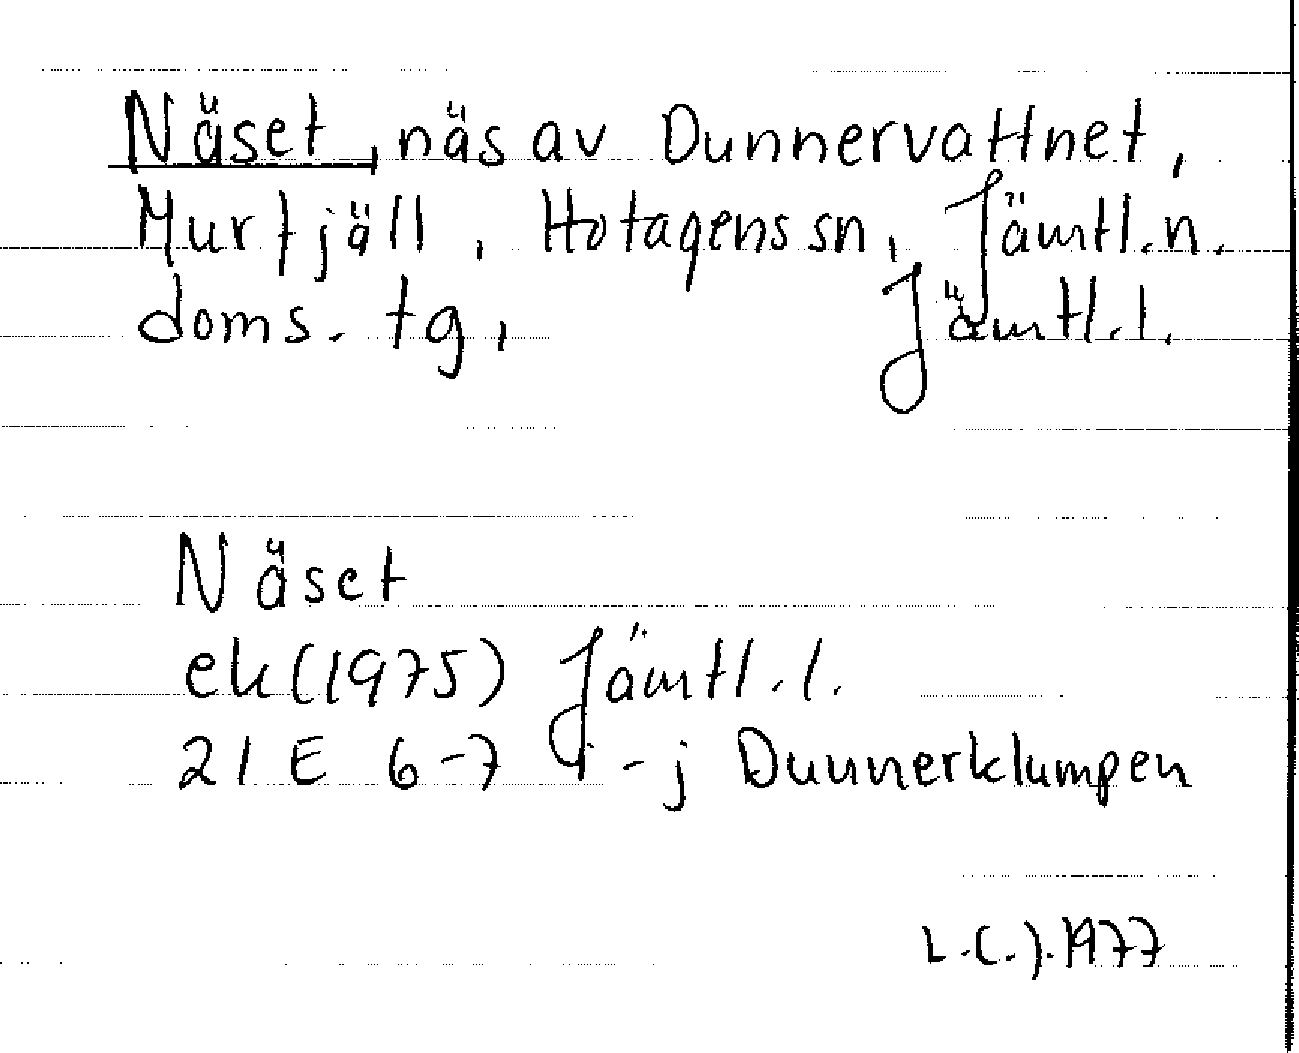 Näset, näs av Dunnervattnet,
Murfjäll, Hotagens sn, Jämtl.n.
doms. tg, Jämtl.l.
Näset
ek (1975) Jämtl.l.
21 E 6-7 i-j Dunnerklumpen
L.C.J. 1977